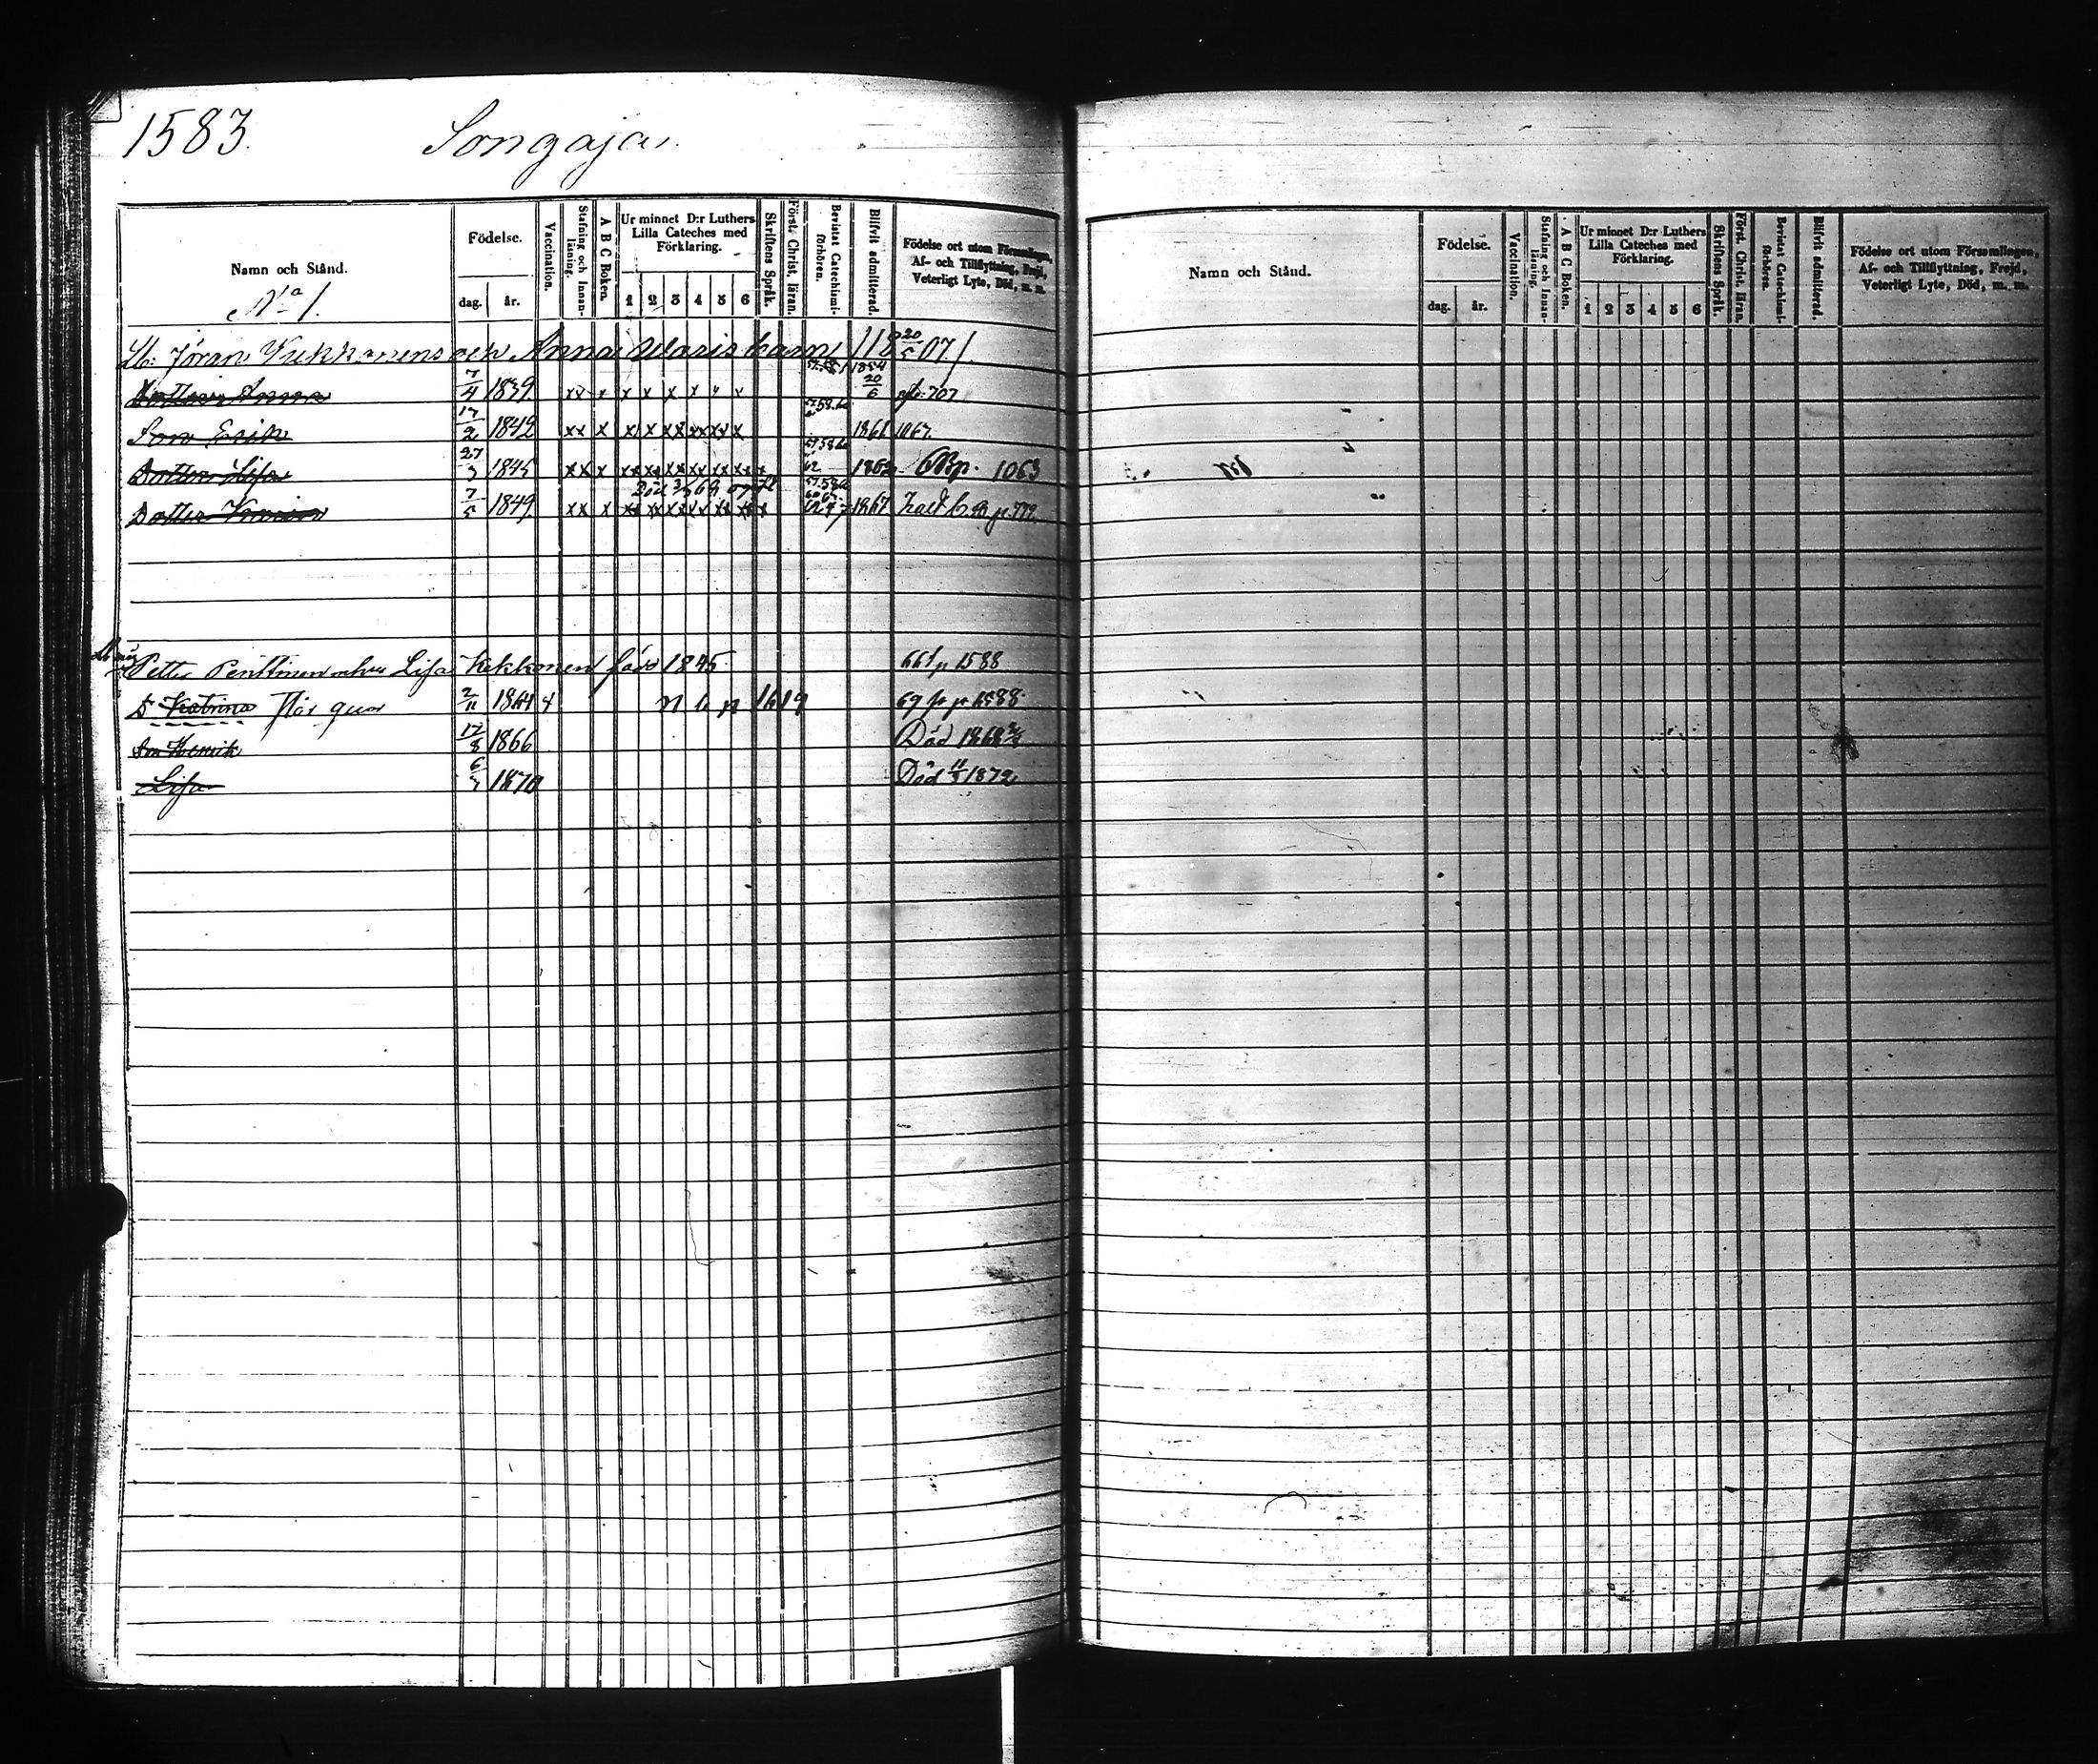 1583. Songaja.
Namn och Stånd. Födelse. dag. år. Vaccination. Stafning och Innanläsning. A B C Boken. Ur minnet D:r Luthers Lilla Cateches med Förklaring. 1 2 3 4 5 6 Skriftens Språk. Först. Christ. läran. Bevistat Catechismiförhören. Blifvit admitterad. Födelse ort utom Församlingen, Af- och Tillflyttning, Frejd, Veterligt Lyte, Död, m. m.
No 1.
Jöran Kukkonens och Anna barn
Dotter Anna 7/4 1839 xx x x x x x 20/6 707
Son Erik 17/2 1842 xx x x x xx xx xx x 1861 1067.
Dotter Lisa 27 1845 xx x xx xx xx xx xx xx 62 1862 1063
Dotter Karin 7/5 1849 xx x xx xx xx xx xx xx 1867 p. 779
Petter Penttinen Lisa Kekkonen född 1845 66 p 1588
D Katrina Här qvar 2/11 1864 1619 69 p 1588
Son Henrik 17/8 1866 Död 1868
Lisa 6 1870 Död 1872
Namn och Stånd. Födelse. dag. år. Vaccination. Stafning och Innanläsning. A B C Boken. Ur minnet D:r Luthers Lilla Cateches med Förklaring. 1 2 3 4 5 6 Skriftens Språk. Först. Christ. läran. Bevistat Catechismiförhören. Blifvit admitterad. Födelse ort utom Församlingen, Af- och Tillflyttning, Frejd, Veterligt Lyte, Död, m. m.